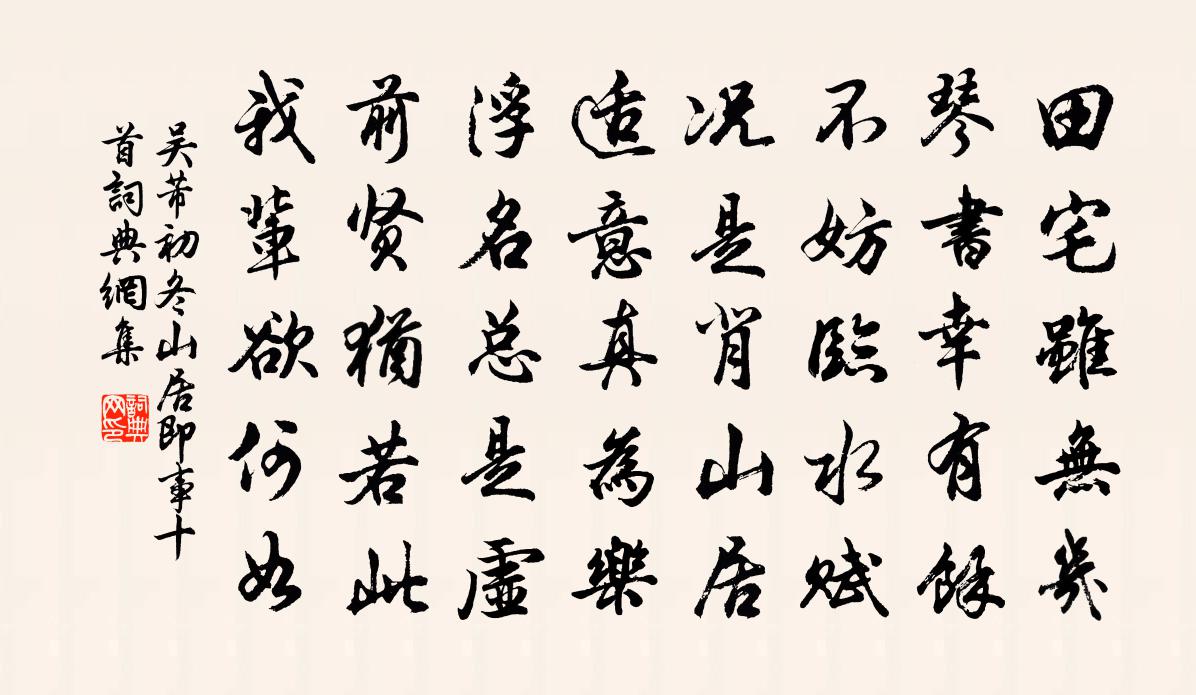 田宅雖無幾
琴書幸有餘
不妨臨水賦
况是肖山居
适意真為樂
浮名总是虛
前贤猶若此
我輩欲何如
吴芾初冬山居即事十
首詞典網集
詞典
网印